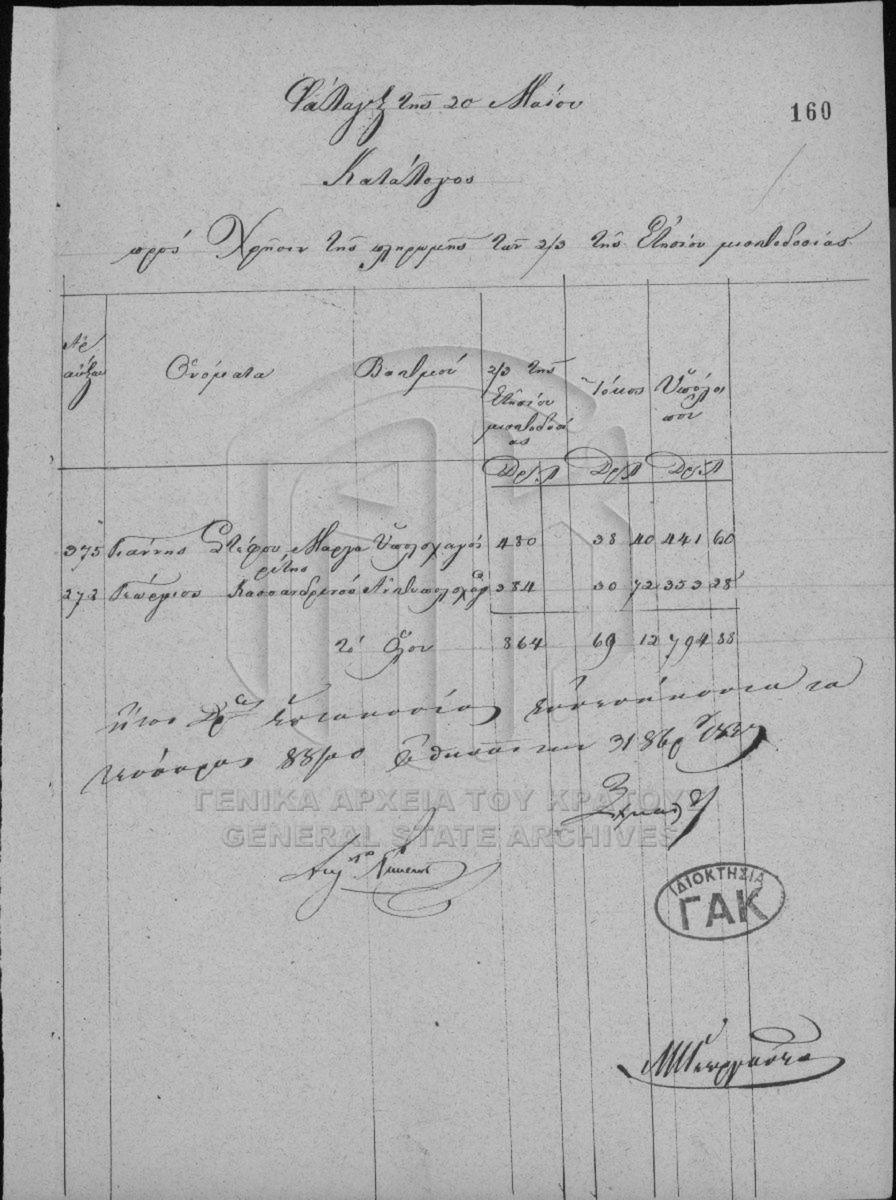 Φάλαγξ τῆς 20 Μαΐου
160
Κατάλογος
πρὸς Χρῆσιν τῆς πληρωμῆς τῶν 2/3 τῆς Ἐτησίου μισθοδοσίας
Ἀρ αὔξων Ὀνόματα Βαθμοὺ 2/3 τῆς Ἐτησίου μισθοδοσίας Τόκος Ὑπόλοιπον
Δρ. Λ Δρ. Λ Δρ. Λ
375 Γιάννης Στέφου Μαργαρίτης Ὑπολοχαγός 480 38 40 441 60
272 Γεώργιος Κασσανδρινοῦ Ἀνθυπολοχαγ 384 30 72 353 28
τὸ ὅλον 864 69 12 794 88
ἤτοι Δρ ἑπτακοσίας ἐννενήκοντα τέσσαρας 88/100
ΓΕΝΙΚΑ ΑΡΧΕΙΑ ΤΟΥ ΚΡΑΤΟΥΣ
GENERAL STATE ARCHIVES
ΔΙΟΚΤΗΣΙΑ
ΓΑΚ